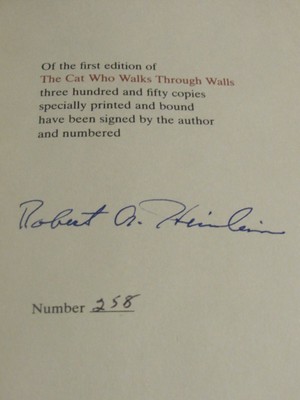 Of the first edition of
The Cat Who Walks Through Walls
three hundred and fifty copies
specially printed and bound
have been signed by the author
and numbered
Robert A. Heinlein
Number 258